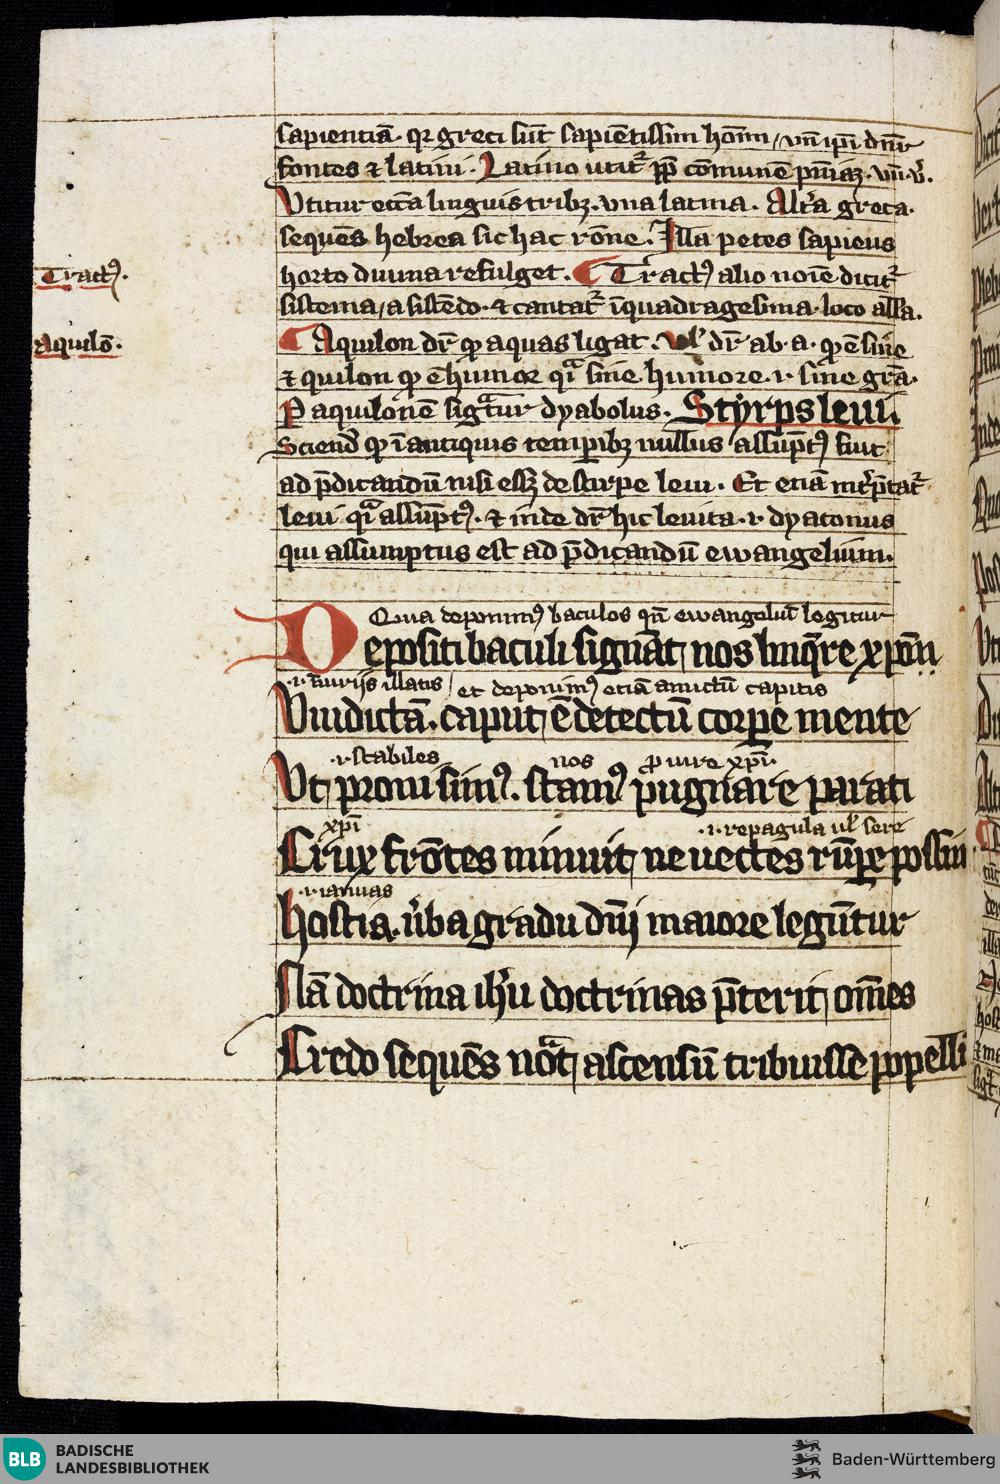 sapientiā. qꝛ greci sūt sapiētissim hoīm / vn̄ ip̄i dn̄r
fontes ⁊ latini. Latino utit᷑ ꝓp̄ cōmunē
Vtitur ecc̄a linguis tribꝫ. vna latina. Alt̓a greca.
sequēs hebrea sic hac rōne. Illa petes sapiens
Tract᷒.
horto diuina refulget. Tract᷒ alio noīe dicit᷑
sistema / a sistēdo. ⁊ cantat᷑ ī quadragesima loco all̄a.
Aquilō.
Aquilon dr̄ ꝙ aquas ligat. Vl̓ dr̄ ab .a. ꝙ ē sine
⁊ quilon ꝙ ē humor qͥa sine humore .i. sine gr̄a.
P aquilonē sigͣtur dyabolus. Styrps leui
Sciend̄ ꝙ ī antiquis temꝑibꝫ nullus assūpt᷒ fuit
ad p̄dicandū nisi esꝫ de stirpe leui. Et etiā int̓p̄tat᷑
leui qͥa assūpt᷒. ⁊ inde dr̄ hic leuita .i. dyaconus
qui assumptus est ad p̄dicandū ewangelium.
Qua deponim᷒ baculos qn̄ ewangeliū legitur
Depositi baculi signāt nos linq̄re xp̄m
.i. īiuriis illatis / et deponim᷒ etiā amictū capitis
Vindictā. caput ē detectū corꝑe mente
.i. stabiles nos ꝓ iure xp̄i
Vt proni sim᷒. stam᷒ pugnare parati
xp̄i .i. repagula ul̓ sere
Crux frōtes minuit ne uectes rūꝑe possin
.i. ianuas
hostis. v̓ba gradu dn̄i maiore legūtur
Nā doctrina ih̓u doctrinas p̄terit om̄es
Credo sequēs notͣ ascensū tribuisse popelli
BLB
BADISCHE
LANDESBIBLIOTHEK
Baden-Württemberg